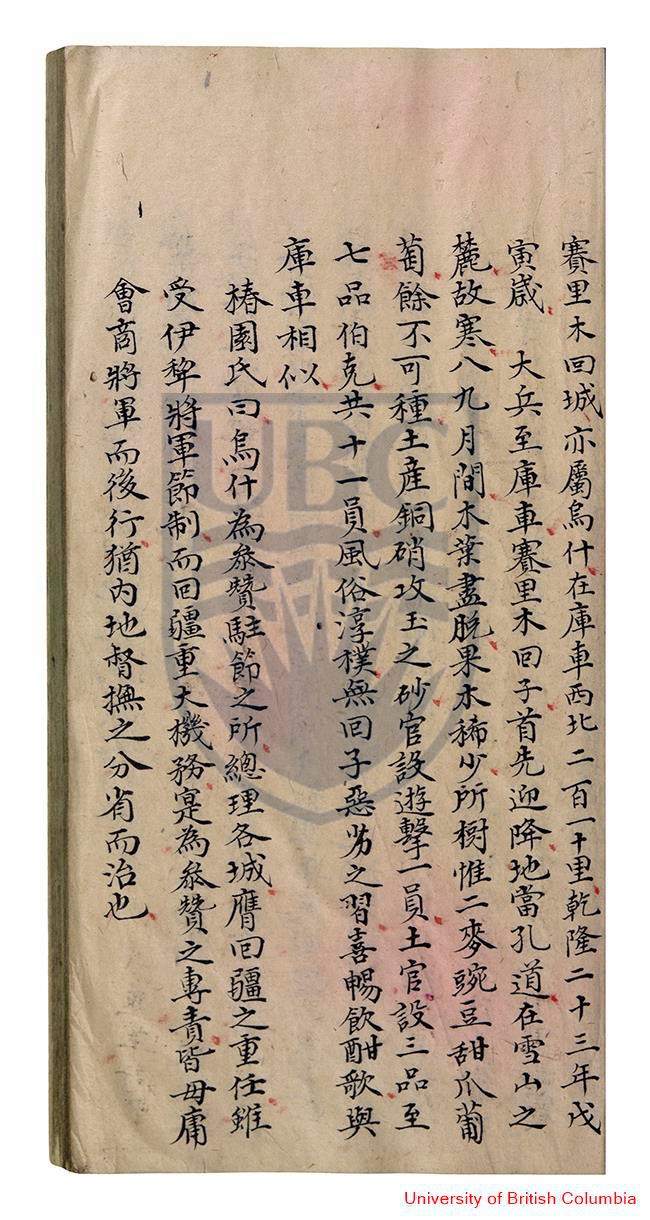 賽里木回城亦屬烏什在庫車西北二百一十里乾隆二十三年戊
寅歲　大兵至庫車賽里木回子首先迎降地當孔道在雪山之
麓故寒八九月間木葉盡脫果木稀少所樹惟二麥豌豆甜瓜葡
萄餘不可種土産銅硝攻玉之砂官設遊擊一員土官設三品至
七品伯克共十一員風俗淳樸無回子惡劣之習喜暢飲酣歌與
庫車相似
椿園氏曰烏什為叅贊駐節之所總理各城膺回疆之重任雖
受伊犂將軍節制而回疆重大機務寔為叅贊之專責皆毋庸
會商將軍而後行猶内地督撫之分省而治也
UBC
University of British Columbia